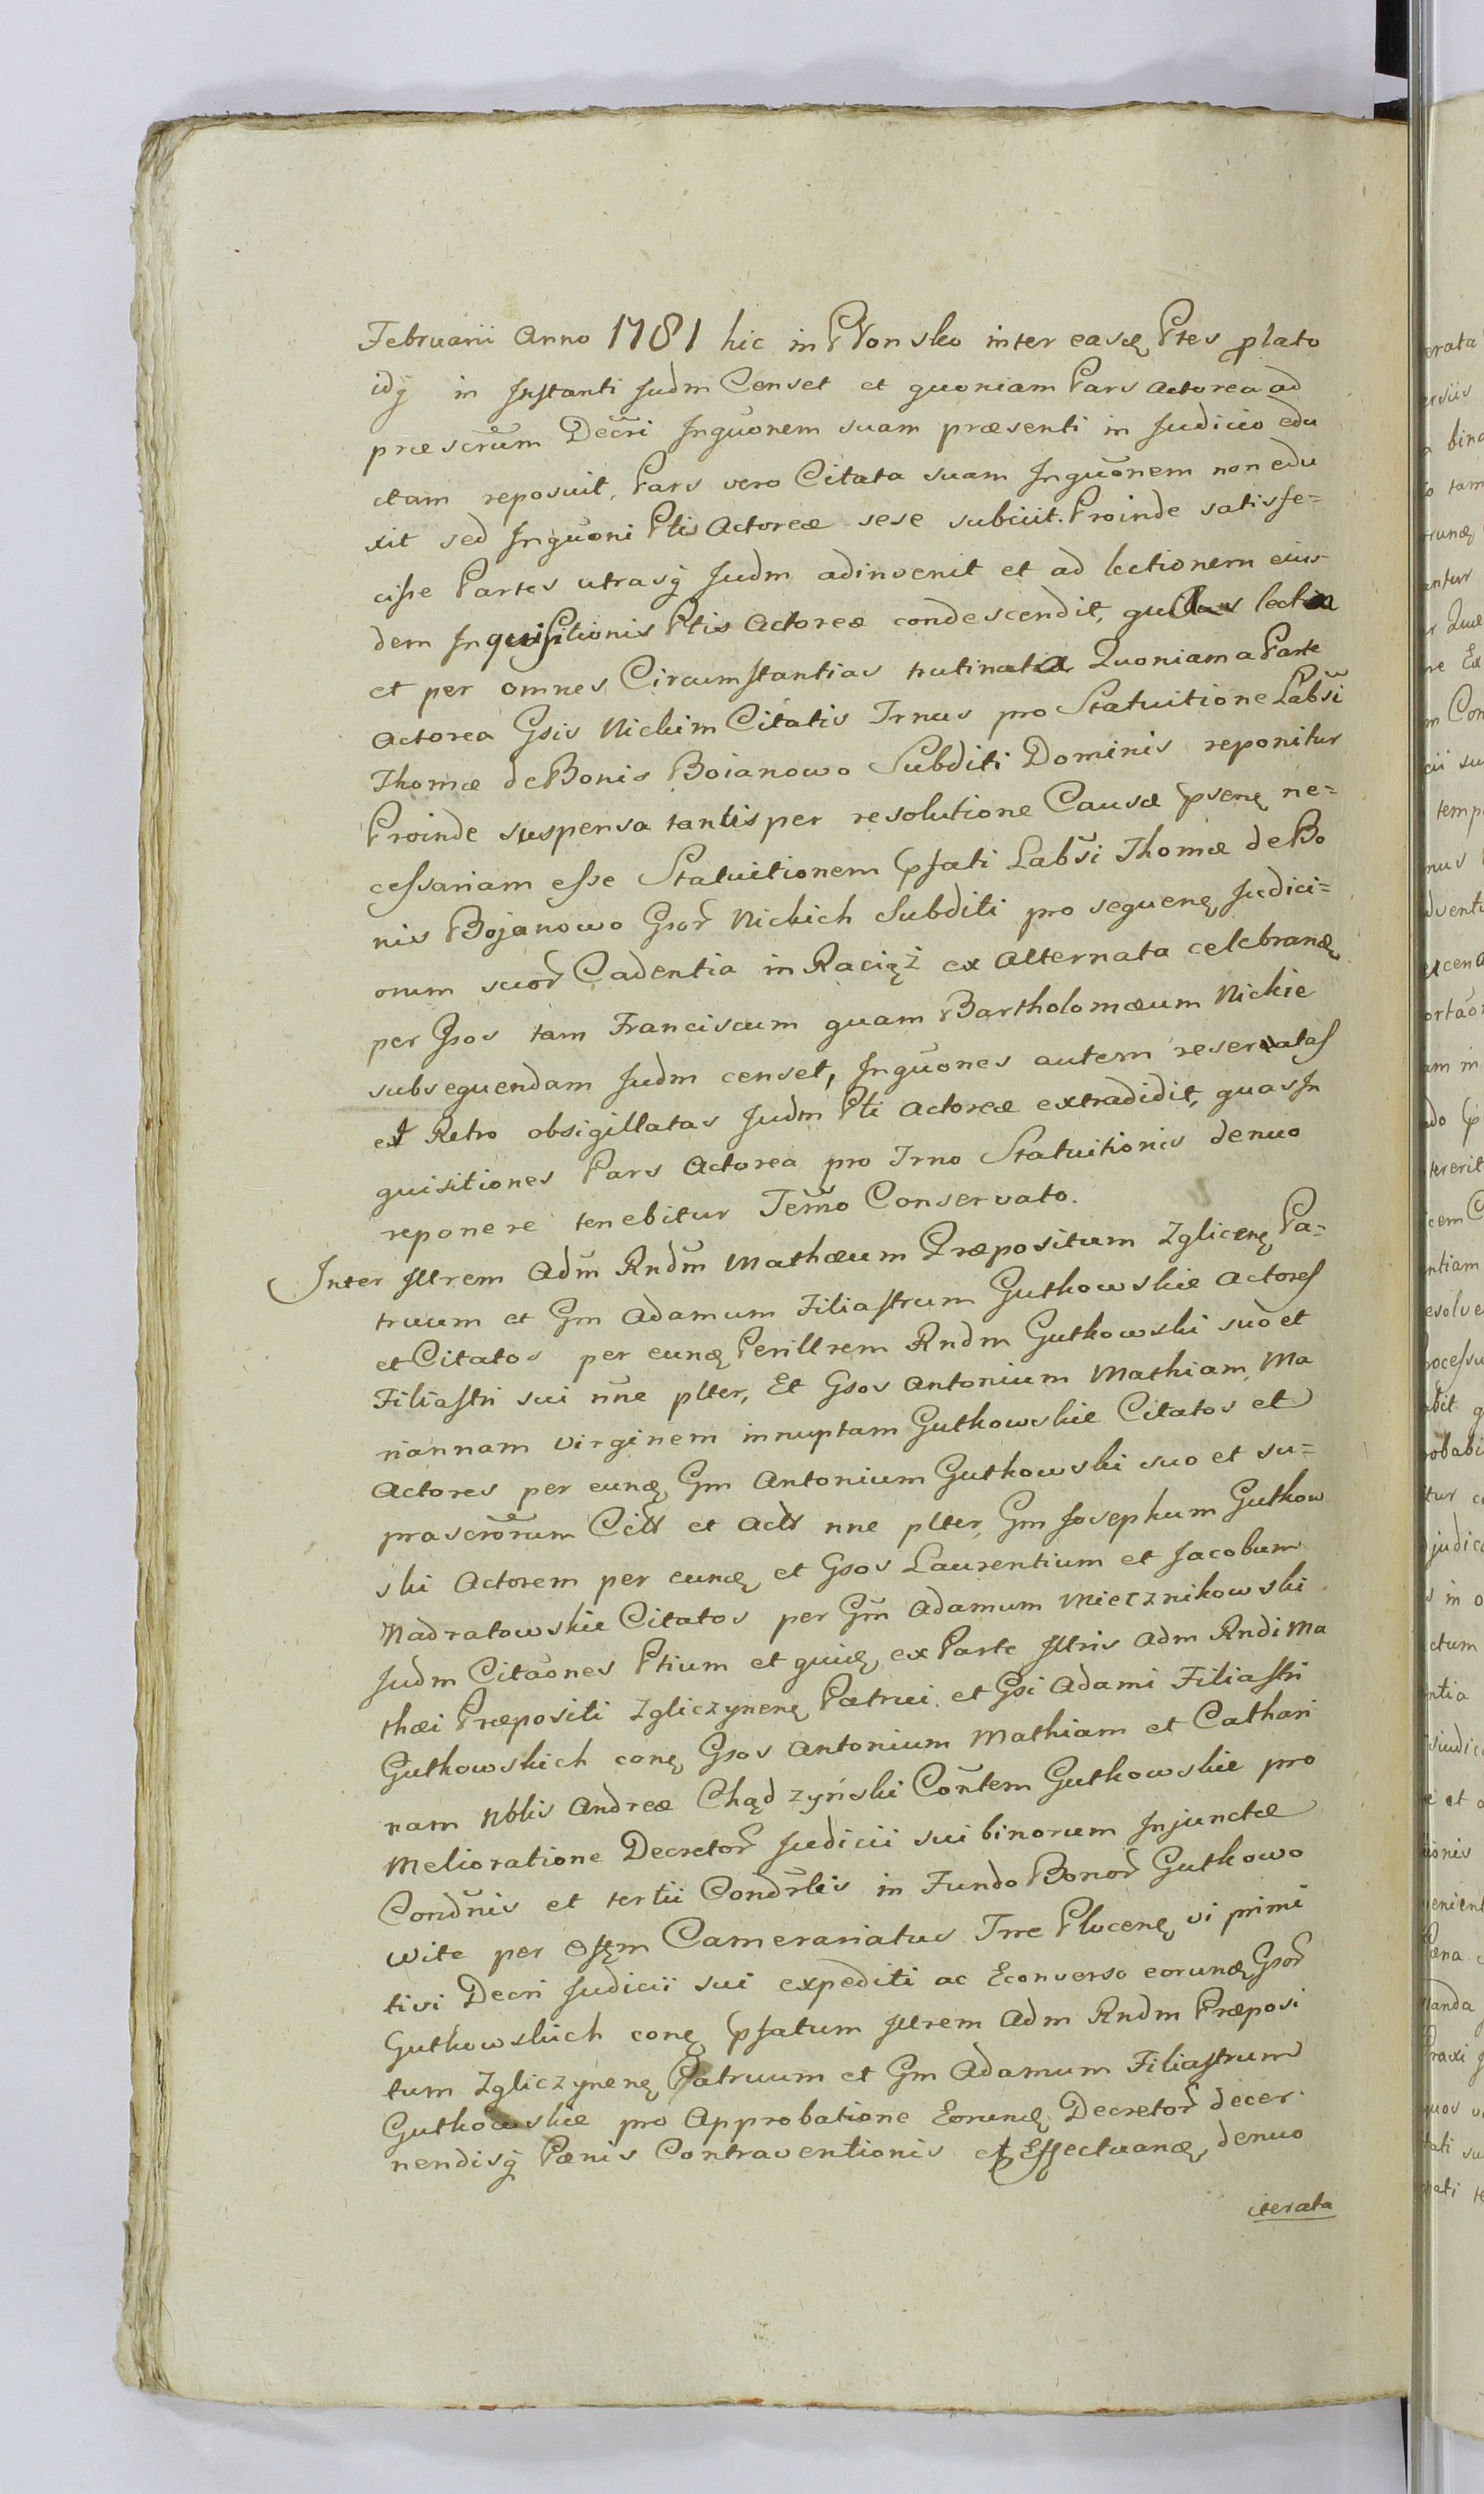 Februarii Anno 1781 hic in Płonsko inter easđ Ptes plato
idq in Instanti Judm Censet et quoniam Pars Actorea ad
præscrūm Decri Inquōnem suam præsenti in Judicio edu
ctam reposuit, Pars vero Citata suam Inquōnem non edu
xit sed Inquōni Ptis Actoreæ sese subiuit. Proinde satisfe=
cisse Partes utrasq Judm adinvenit et ad lectionem eius
dem Inquisitionis Ptis Actoreæ condescendit, lecta
et per omnes Circumstantias trutinata Quoniam a Parte
Actorea Gsis Nickim Citatis Trnus pro Statuitione Labsi
Thomæ de Bonis Boianowo Subditi Dominis reponitur
Proinde suspensa tantisper resolutione Causæ pseną ne=
cessariam esse Statuitionem pfati Labsi Thomæ de Bo
nis Bojanowo Gsor Nickich Subditi pro sequeną Judici=
orum suor Cadentia in Raciąż ex Alternata celebraną
per Gsos tam Franciscum quam Bartholomæum Nickie
subsequendam Judm censet, Inquōnes autem reservatas
et Retro obsigillatas Judm Pti Actoreæ extradidit, quas In
quisitiones Pars Actorea pro Trno Statuitionis denuo
reponere tenebitur Temō Conservato.
Inter Illrem Adm Rndm Mathæum Præpositum Zgliceną Pa=
truum et Gm Adamum Filiastrum Gutkowskie Actores
et Citatos per eunđ Perillrem Rndm Gutkowski suo et
Filiastri sui nne plter, Et Gsos Antonium Mathiam, Ma
riannam virginem innuptam Gutkowskie Citatos et
Actores per eunđ Gm Antonium Gutkowski suo et su=
prascrōrum Citt et Actt nne plter, Gm Josephum Gutkow
ski Actorem per eunđ et Gsos Laurentium et Jacobum
Nadratowskie Citatos per Gm Adamum Miecznikowski
Judm Citaōnes Ptium et quiđ ex Parte Illris Adm Rndi Ma
thæi Præpositi Zgliczyneną Patrui et Gsi Adami Filiastri
Gutkowskich coną Gsos Antonium Mathiam et Cathari
nam Nblis Andreæ Chądzyński Contem Gutkowskie pro
Melioratione Decretor Judicii sui binorum Injunctæ
Condnis et tertii Condrlis in Fundo Bonor Gutkowo
Wite per Offm Camerariatus Trre Ploceną vi primi
tivi Decri Judicii sui expediti ac Econverso eorunđ Gsor
Gutkowskich coną pfatum Illrem Adm Rndm Præposi
tum Zgliczyneną Patruum et Gm Adamum Filiastrum
Gutkowskie pro Approbatione Eorunđ Decretor decer
nendisq Pænis Contraventionis et Effectuanđ denuo
iterata